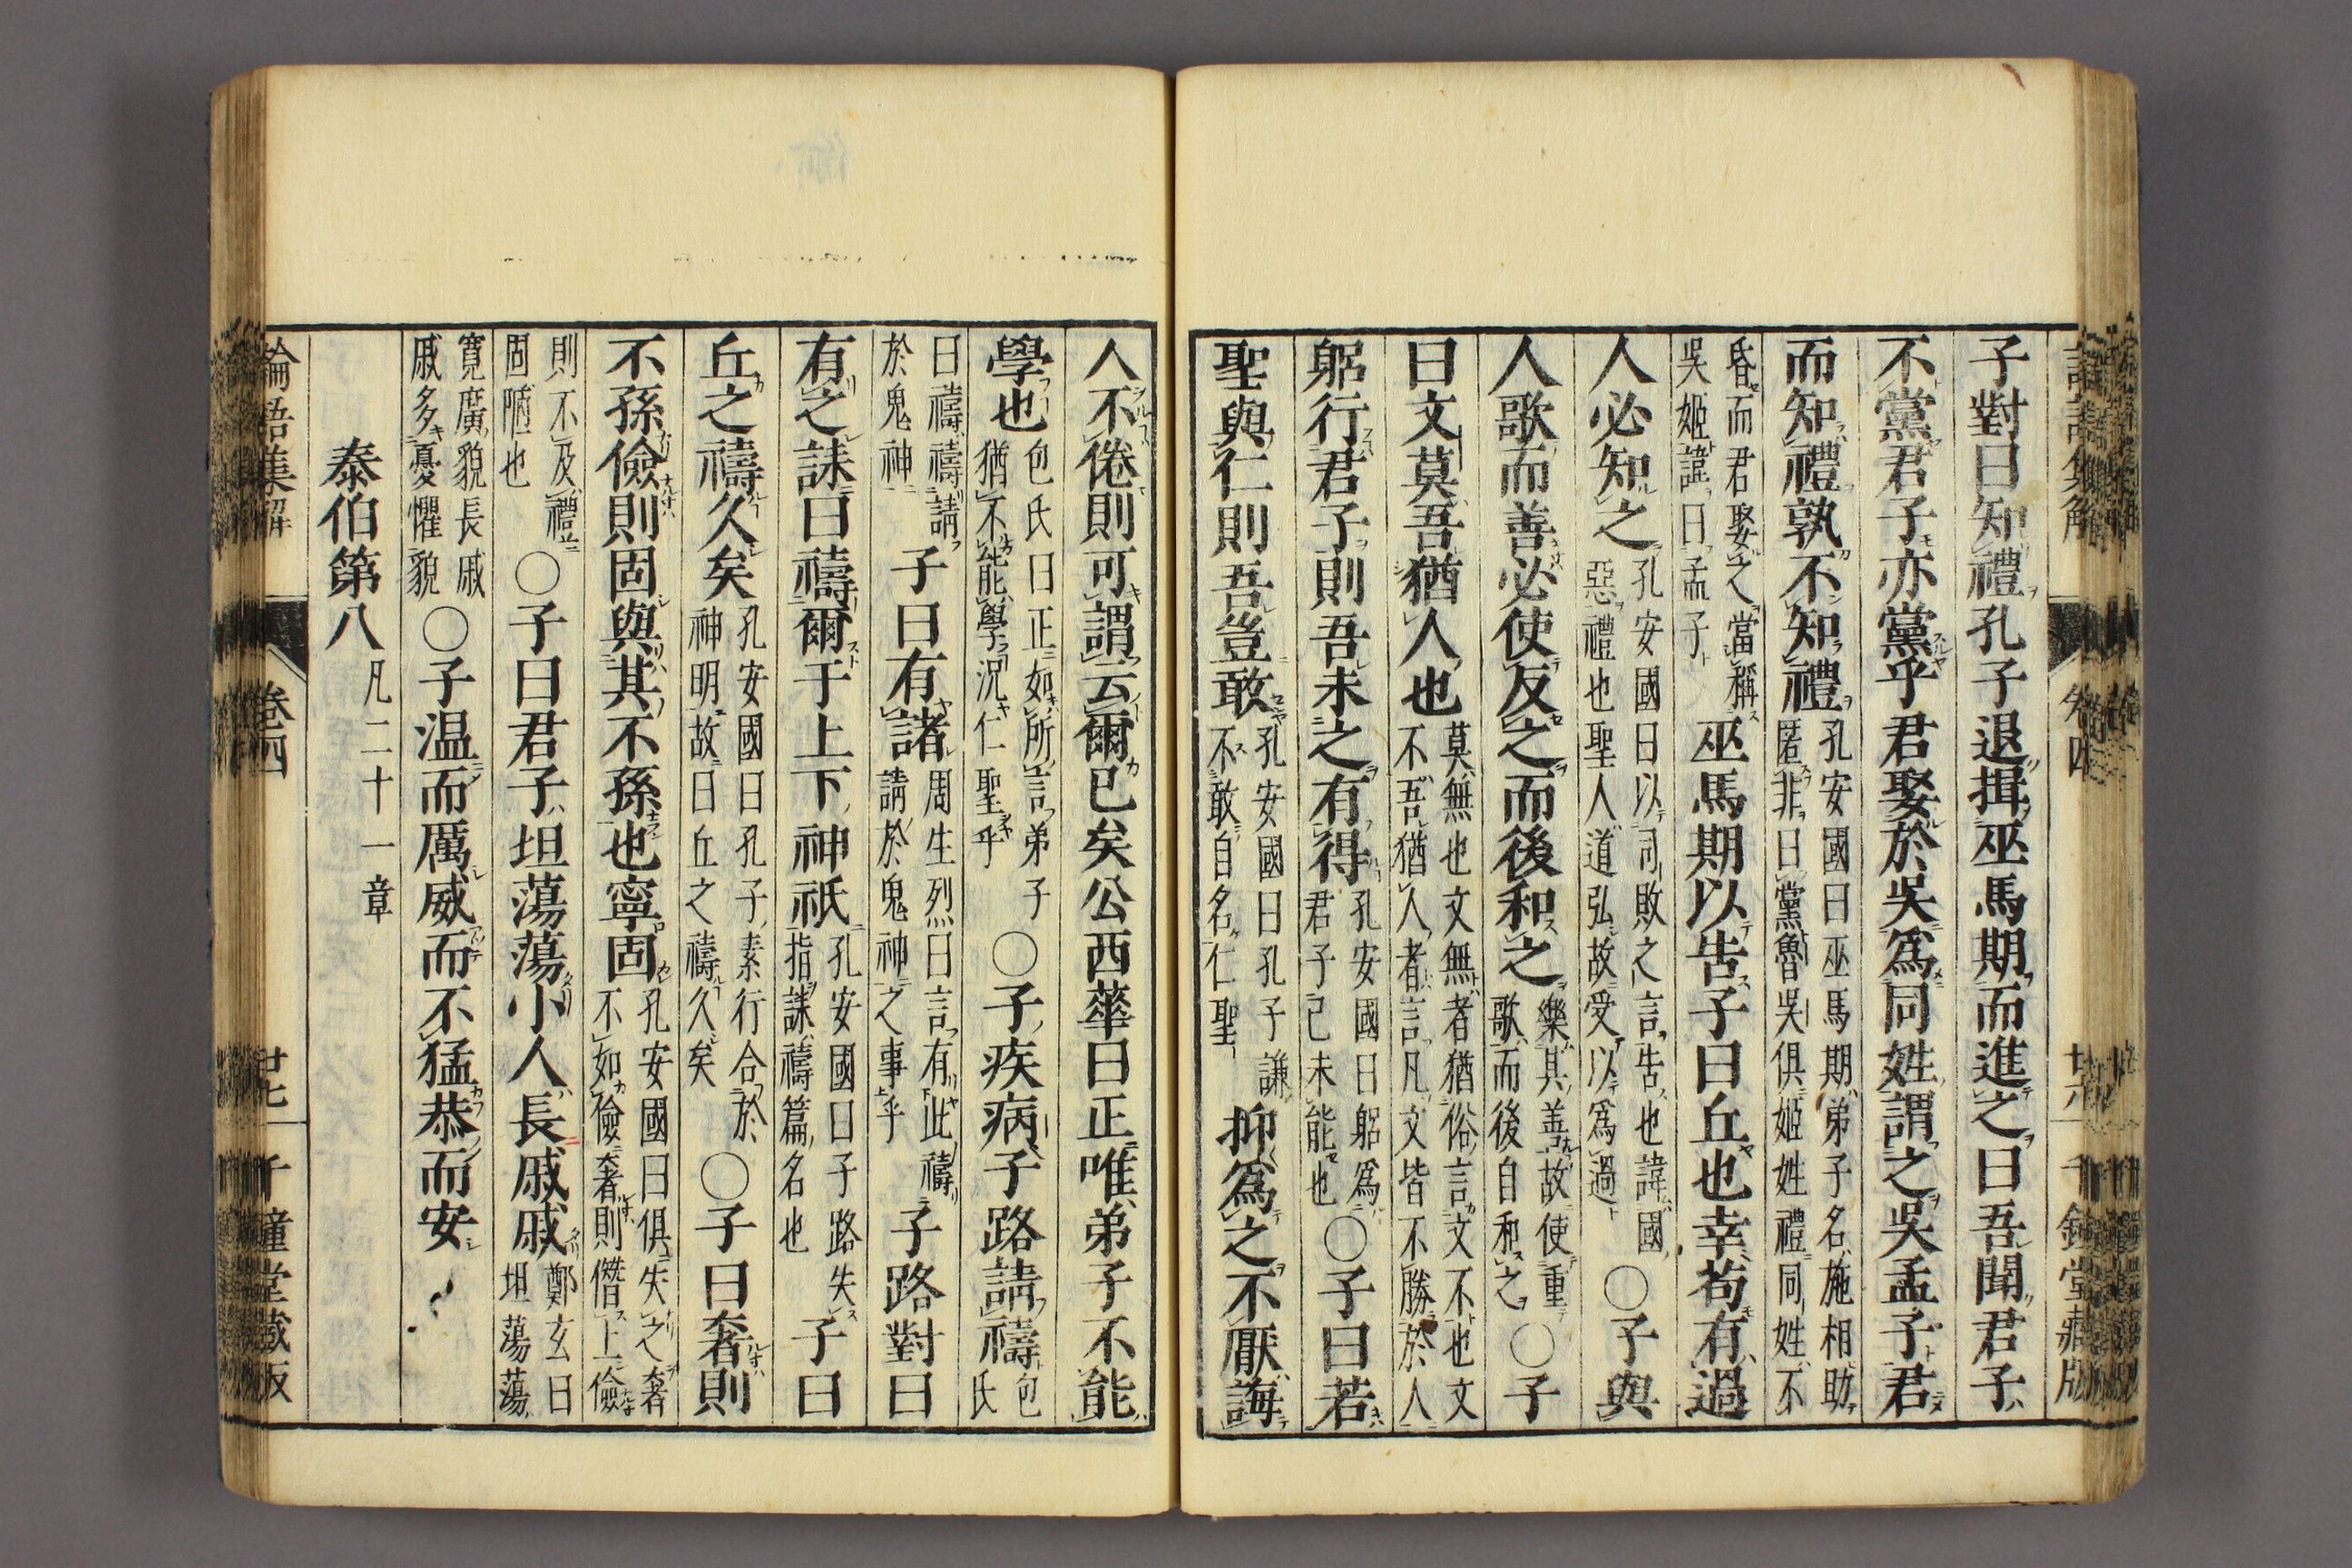 論語集解 卷四 廿六 千鍾堂藏版
子對曰知禮孔子退揖巫馬期而進之曰吾聞君子
不黨君子亦黨乎君娶於吳爲同姓謂之吳孟子君
而知禮孰不知禮孔安國曰巫馬期弟子名施相助匿非曰黨魯吳俱姬姓禮同姓不
昏而君娶之當稱吳姬諱曰孟子巫馬期以告子曰丘也幸苟有過
人必知之孔安國曰以司敗之言告也諱國惡禮也聖人道弘故受以爲過〇子與
人歌而善必使反之而後和之樂其善故使重歌而後自和之〇子
曰文莫吾猶人也莫無也文無者猶俗言文不也文不吾猶人者言凡文皆不勝於人
躬行君子則吾未之有得孔安國曰躬爲君子己未能也〇子曰若
聖與仁則吾豈敢孔安國曰孔子謙不敢自名仁聖抑爲之不厭誨
人不倦則可謂云爾已矣公西華曰正唯弟子不能
學也包氏曰正如所言弟子猶不能學況仁聖乎〇子疾病子路請禱包氏
曰禱禱請於鬼神子曰有諸周生烈曰言有此禱請於鬼神之事乎子路對曰
有之誄曰禱爾于上下神祇孔安國曰子路失指誄禱篇名也子曰
丘之禱久矣孔安國曰孔子素行合於神明故曰丘之禱久矣〇子曰奢則
不孫儉則固與其不孫也寧固孔安國曰俱失之奢不如儉奢則僭上儉
則不及禮固陋也〇子曰君子坦蕩蕩小人長戚戚鄭玄曰坦蕩蕩
寛廣貌長戚戚多憂懼貌〇子温而厲威而不猛恭而安
泰伯第八 凡二十一章
論語集解 卷四 廿七 千鍾堂藏版